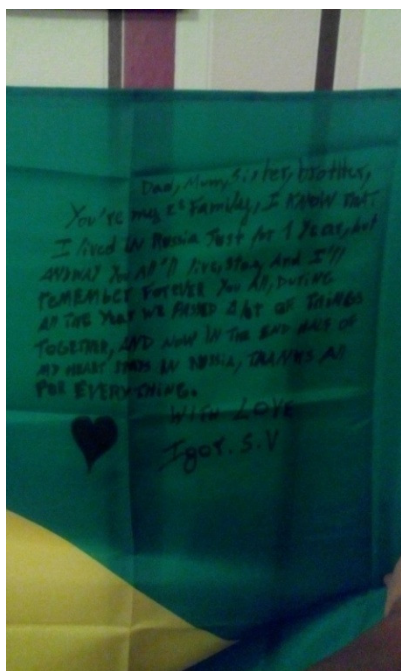 Dad, Mum, sister, brother,
You're my 2ª Family, I KNOW THAT
I lived IN Russia Just for 1 Year, but
ANYWAY You All'll live, stay, And I'll
REMEMBER FOREVER You All, DURING
All THE YEAR WE PASSED A lOT OF THINGS
TOGETHER, AND NOW IN THE END HALF OF
MY HEART STAYS IN RUSSIA, THANKS All
FOR EVERYTHING.
WITH LOVE
Igor. S.V